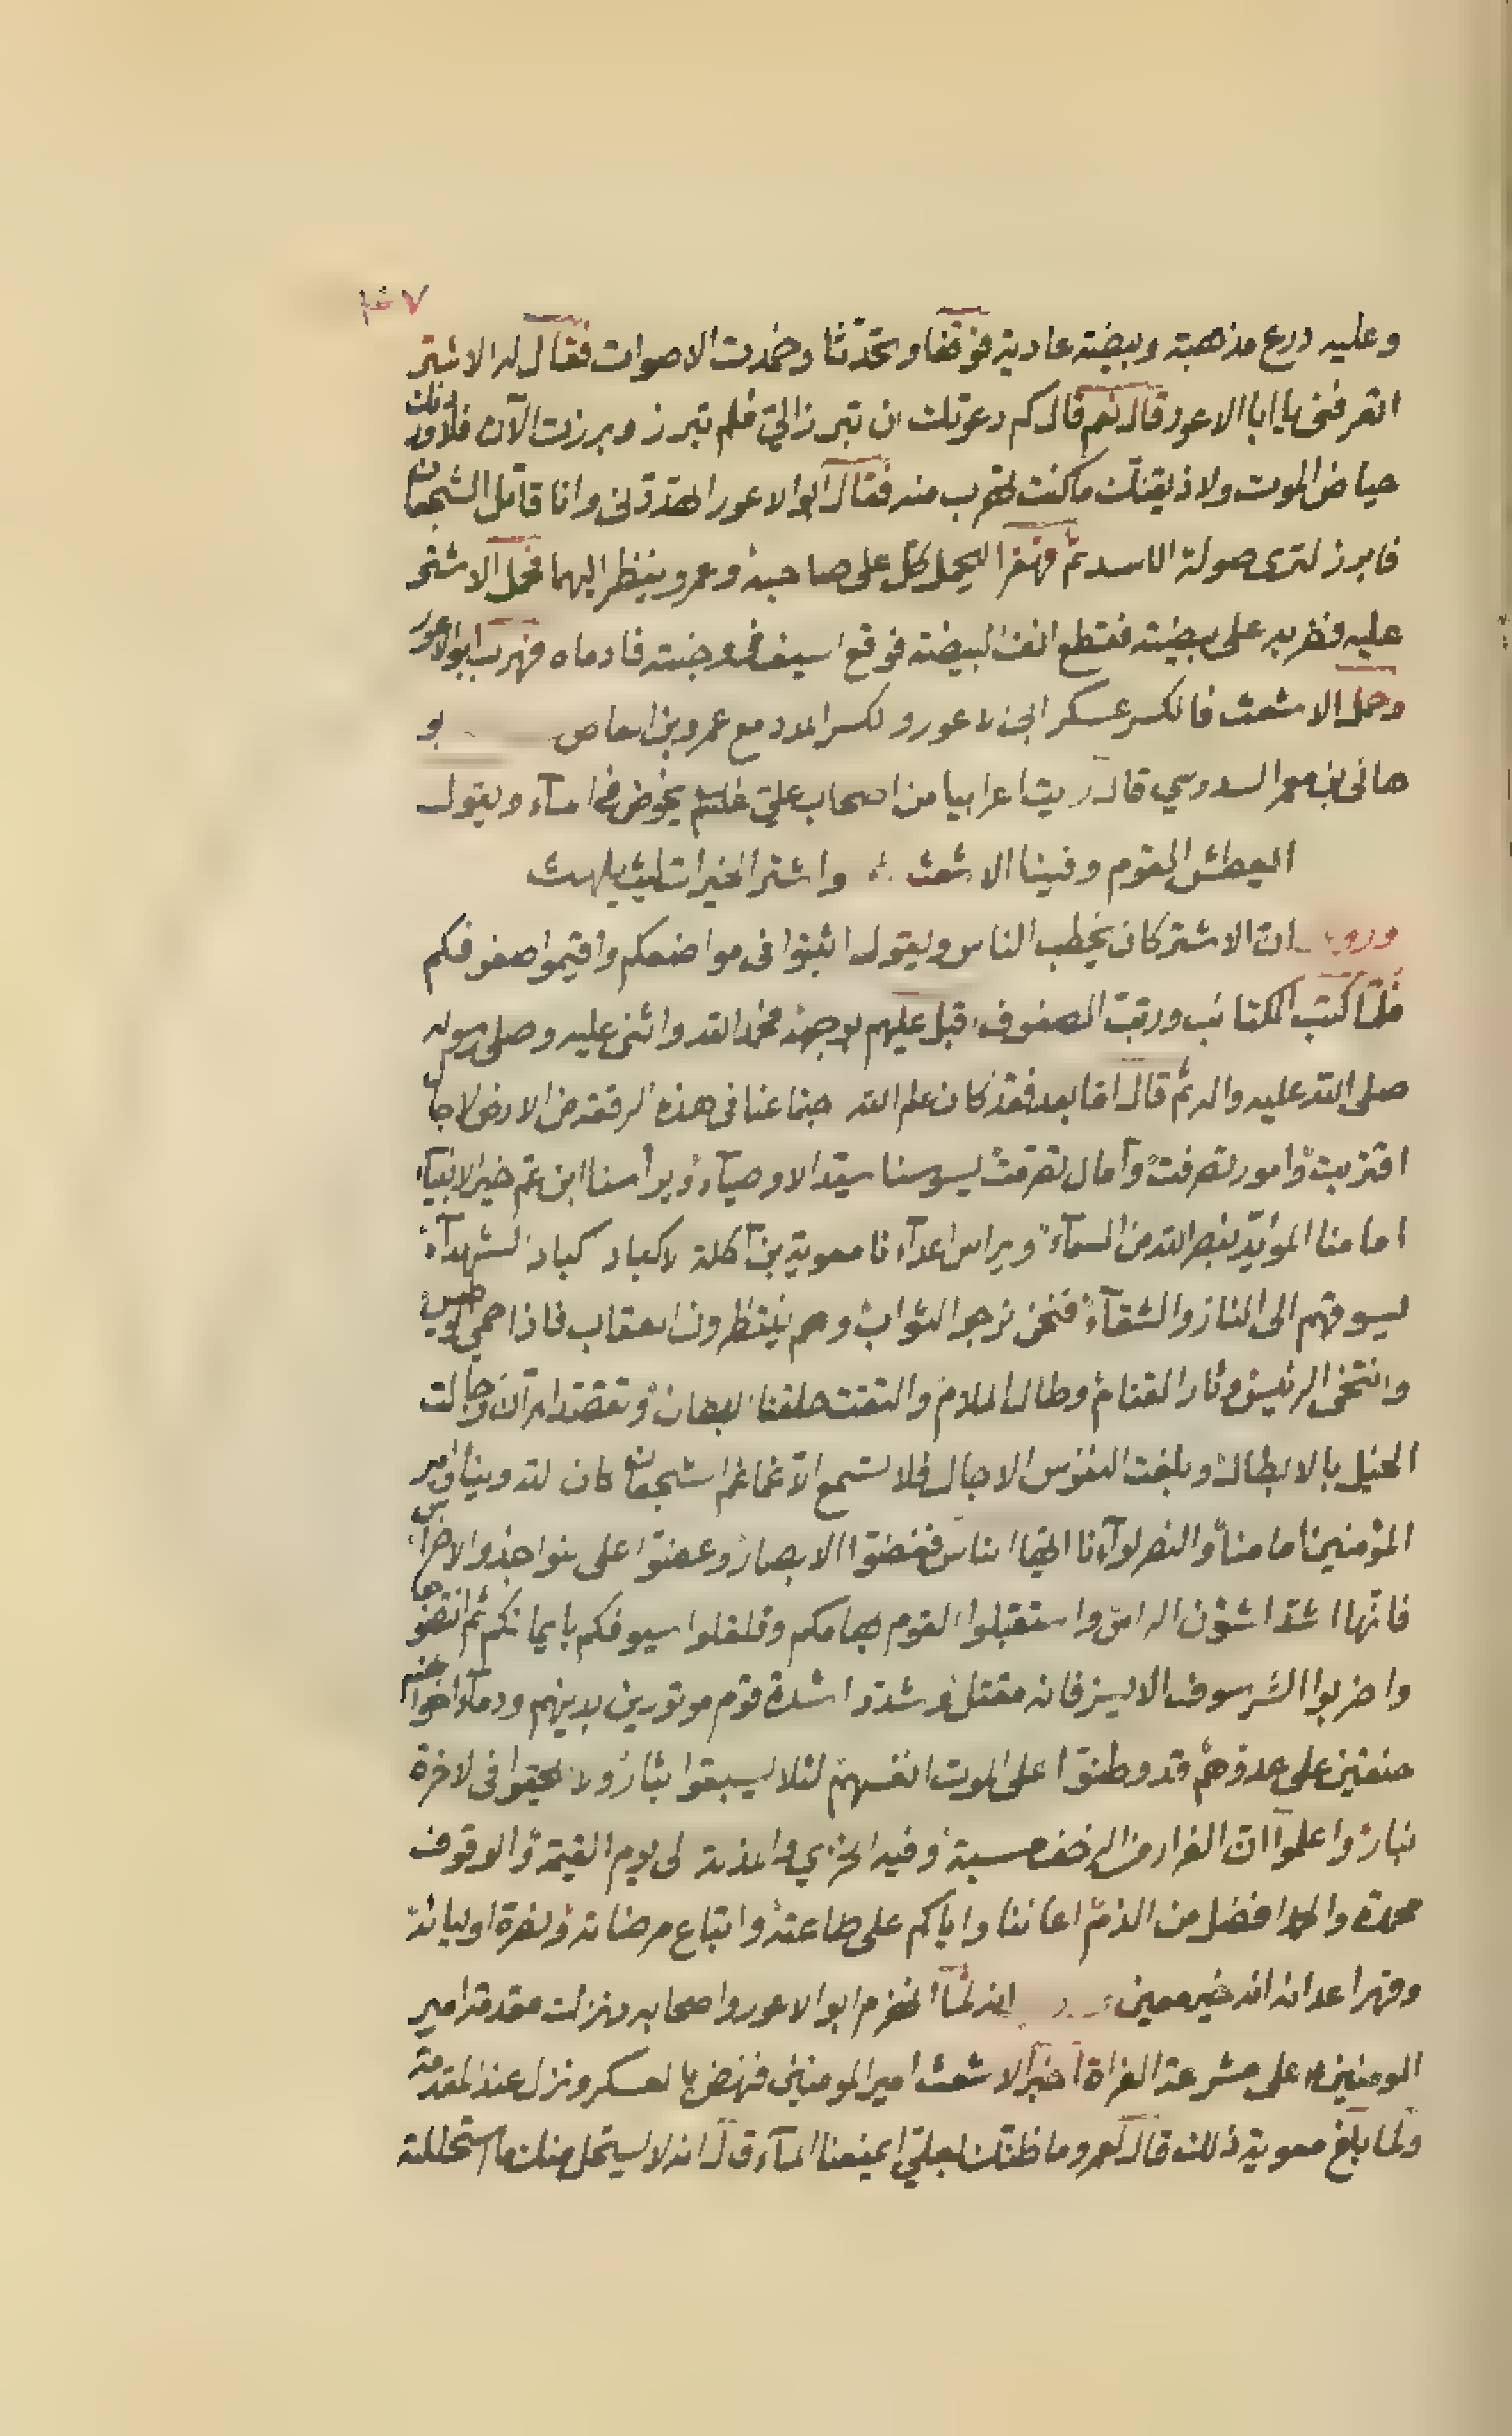 وعليه درع مذهبة وبيضة عادية فوقفا وتحدثا وخمدت الاصوات فقال له الاشتر
اتعرفني يا ابا الاعور قال نعم قال كم دعوتك ان تبرز الي فلم تبرز وبرزت الآن فلأوردنك
حياض الموت ولاذيقنك ما كنت تهرب منه فقال ابو الاعور اتهددني وانا قاتل الشجعان
فابرز لترى صولة الاسد ثم قهقرا ليحمل كل على صاحبه وعمرو ينظر اليهما فحمل الاشتر
عليه فضربه على بيضته فقطع انف البيضة فوقع السيف في وجنته فادماه فهرب ابو الاعور
وحمل الاشعث فانكسر عسكر ابي الاعور وانكسر المدد مع عمرو بن العاص
هانى بن معمر السدوسي قال رايت اعرابيا من اصحاب علي يخوض في الماء ويقول
ايعطش القوم وفينا الاشعث ∴ واشتر الخيرات ليث يلهث
وروي ان الاشتر كان يخطب الناس ويقول اثبتوا في مواضعكم واقيموا صفوفكم
فلما كتب الكتائب ورتب الصفوف اقبل عليهم بوجهه فحمد الله واثنى عليه وصلى رسوله
صلى الله عليه واله ثم قال اما بعد فقد كان علم الله اجتماعنا في هذه الرقعة من الارض لاجال
اقتربت وامور تصرفت وآمال تصرمت يسوسنا سيد الاوصياء ويرأسنا ابن عم خير الانبياء
امامنا المؤيد بنصر الله من السماء ويراس اعداءنا معوية بن آكلة الاكباد اكباد الشهداء
يسوقهم الى النار والشقاء فنحن نرجو الثواب وهم ينتظرون العقاب فاذا حمي الوطيس
وانتخى الرئيس وثار القتام وطال الملام والتقت حلقتا البطان وتقصد المران وجالت
الخيل بالابطال وبلغت النفوس الاجال فلا تسمع الا غماغم الشجعان كان الله ولينا وامير
المؤمنين امامنا والنصر لواءنا ايها الناس فغضوا الابصار وعضوا على نواجذ والاضراس
فانها اشد لشؤن الراس واستقبلوا القوم بهامكم وقلقلوا سيوفكم بايمانكم ثم انتضوها
واضربوا الشرسوف الايسر فانه مقتل وشدوا شدة قوم موتورين بدينهم ودماء اخوانهم
حنقين على عدوهم قد وطنوا على الموت انفسهم لئلا يسبقوا بثار ولا يلحقوا في الاخرة
بنار واعلموا ان الفرار من الزحف مسبة وفيه الخزي والمذلة الى يوم القيمة والوقوف
محمدة والحمد افضل من الذم اعاننا واياكم على طاعته واتباع مرضاته ونصرة اوليائه
وقهر اعدائه انه خير معين انه لما انهزم ابو الاعور واصحابه ونزلت مقدمة امير
المومنين على مشرعة الفراة اخبر الاشعث امير المومنين فنهض بالعسكر ونزل عند المقدمة
ولما بلغ معوية ذلك قال لعمرو ما ظنك بعلي ايمنعنا الماء قال انه لا يستحل منك ما استحللته